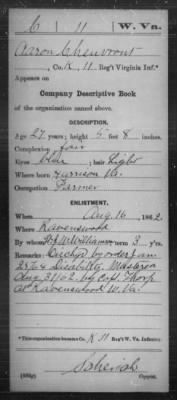 C | 11 | W. Va.
Aaron Chenvront
, Co. K, 11 Reg't Virginia Inf.*
Appears on
Company Descriptive Book
of the organization named above.
DESCRIPTION.
Age 27 years; height 5 feet 8 inches.
Complexion fair
Eyes blue; hair Light
Where born Harrison Va.
Occupation Farmer
ENLISTMENT.
When Aug 16, 1862.
Where Ravenswood
By whom Williams; term 3 y'rs.
Remarks: Disch'd by order Jan
Disability. Mustered
Aug 31/62 by Capt Thorp
at Ravenswood W. Va.
*This organization became Co. K 11 Reg't W. Va. Infantry
Copyist.